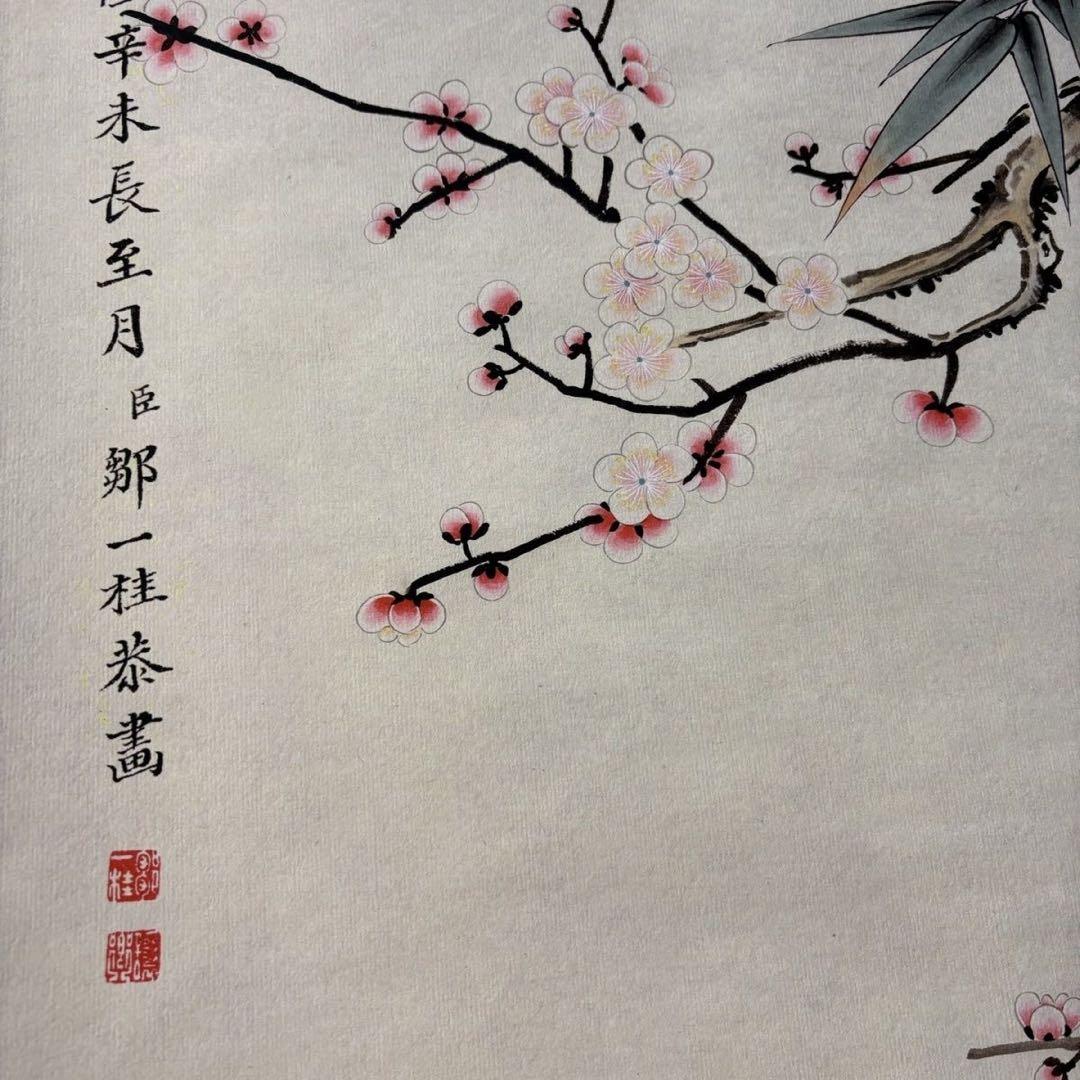 辛未長至月臣鄒一桂恭畫
鄒一桂